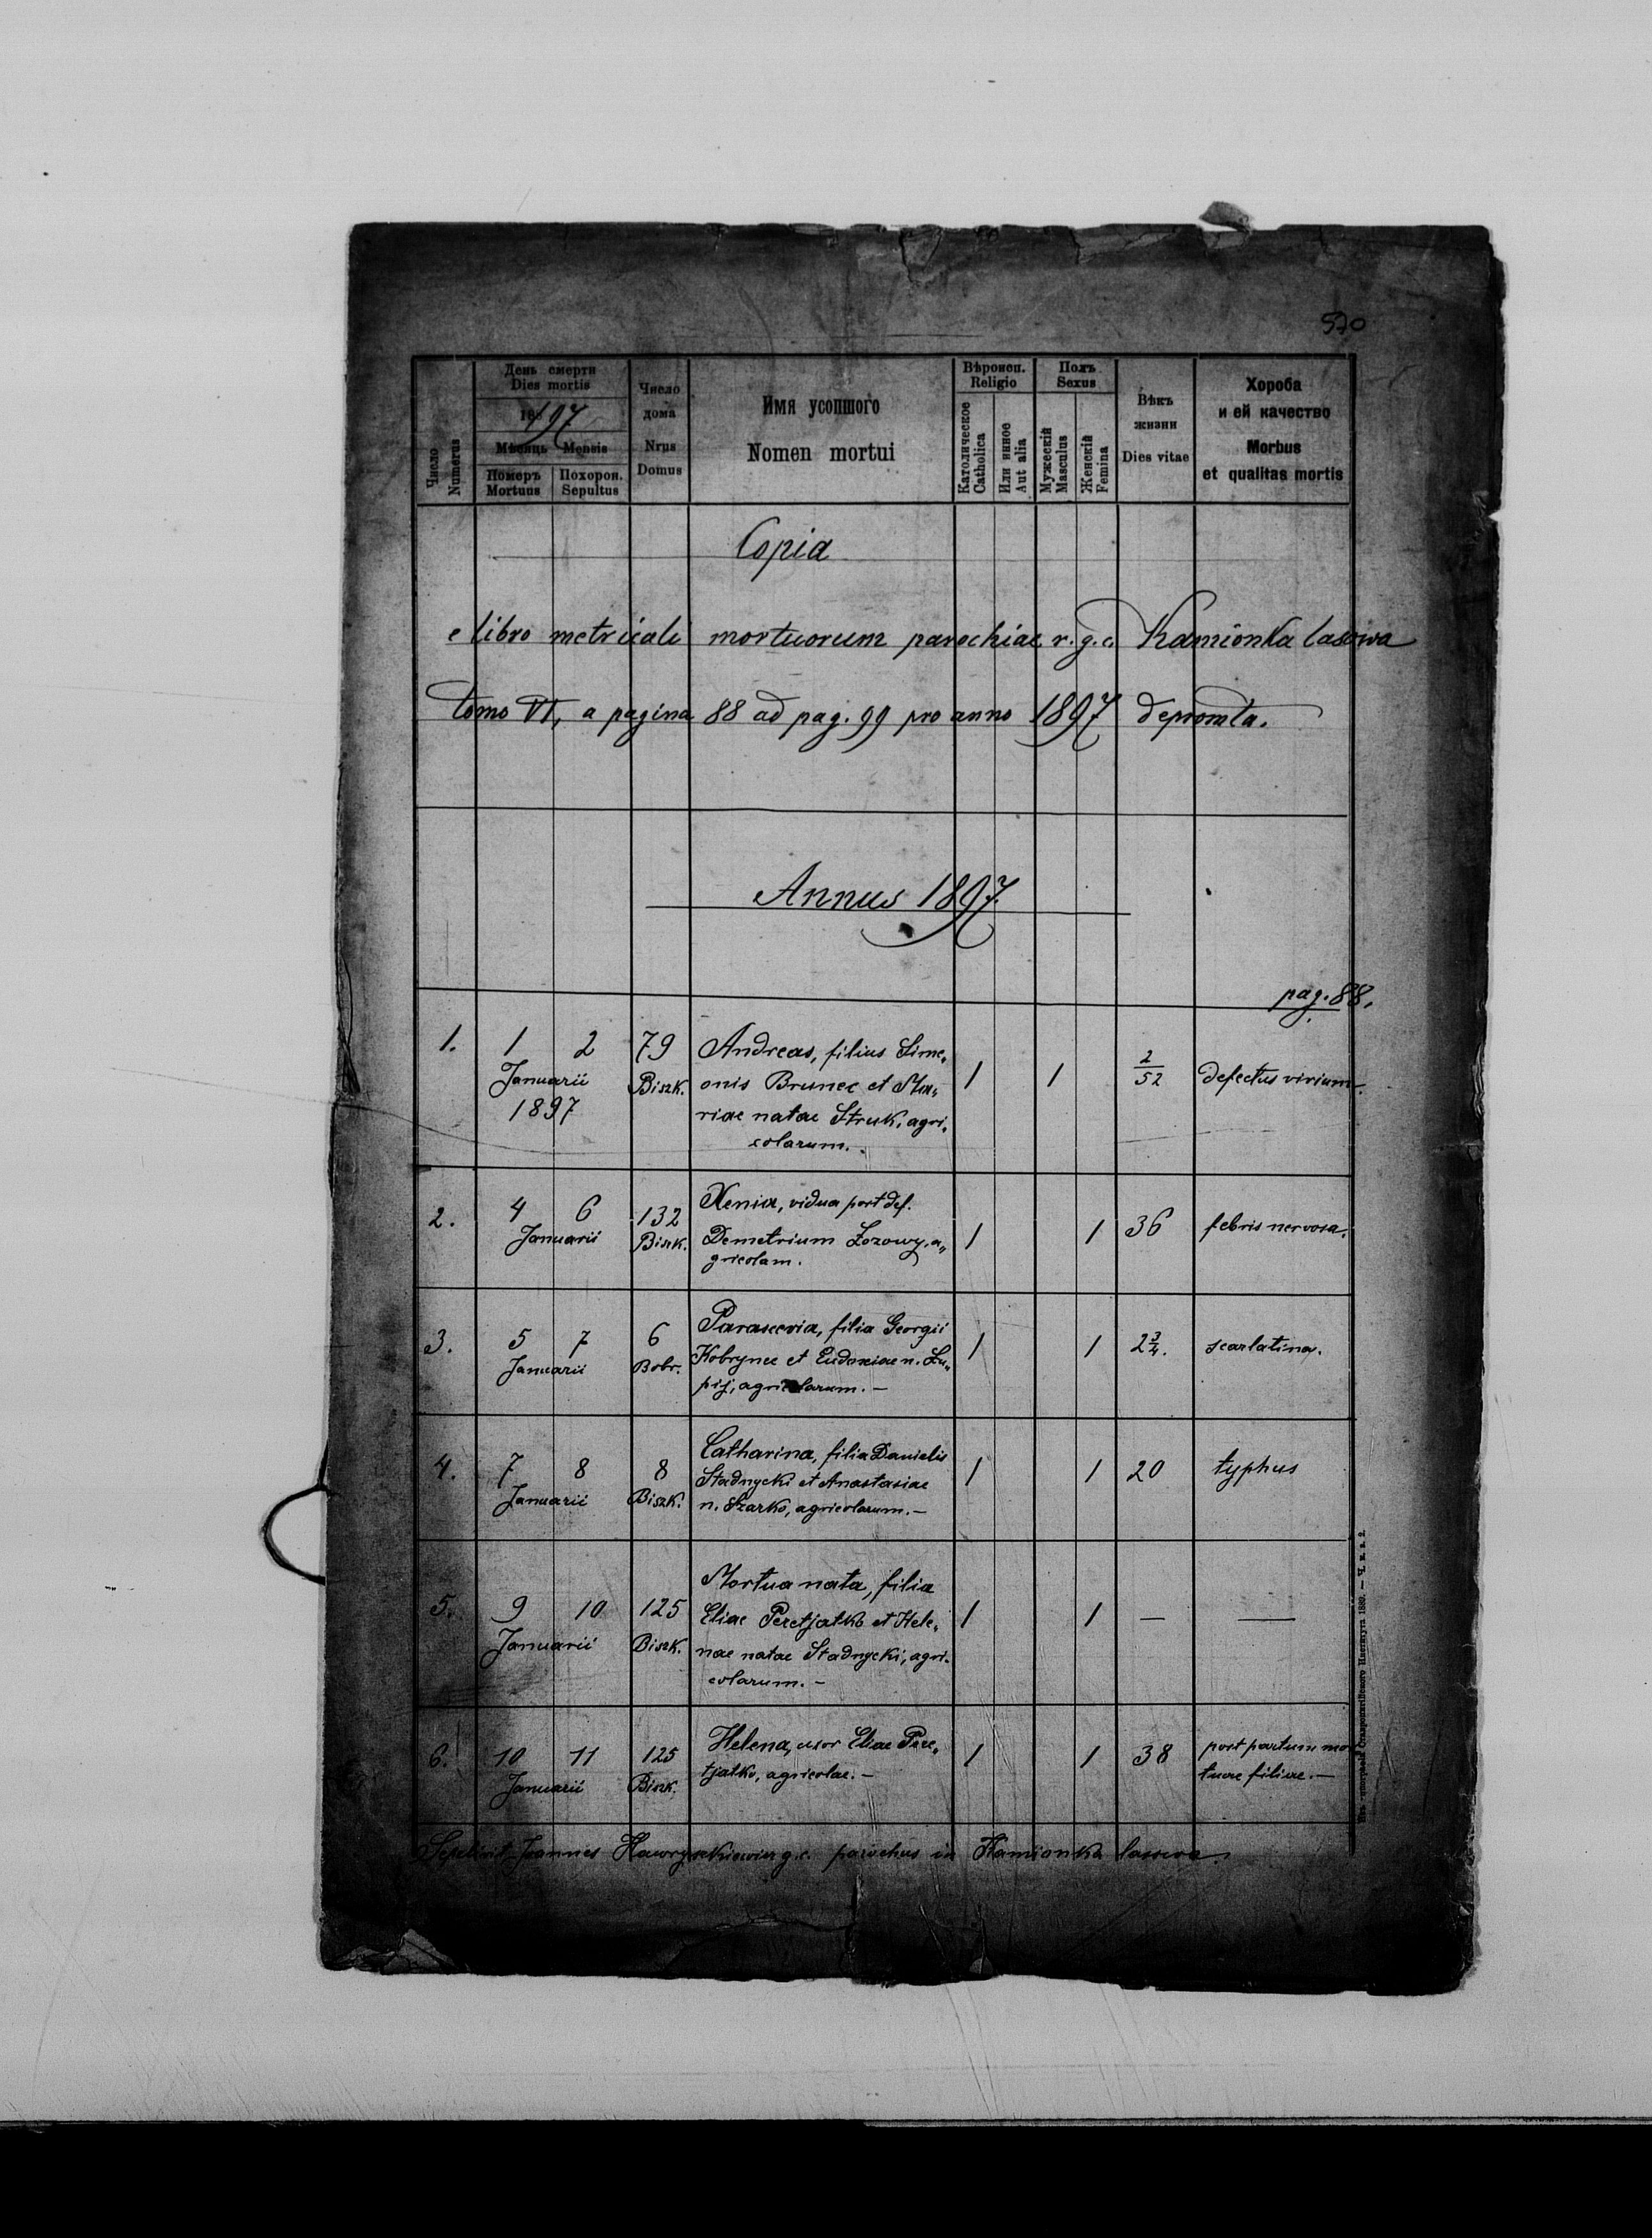 570
Число
Numerus
День смерти
Dies mortis
1897
Мѣсяць Mensis
Померъ
Mortuus
Похорон.
Sepultus
Число
дома
Nrus
Domus
Имя усопшого
Nomen mortui
Вѣроисп.
Religio
Католическое
Catholica
Или инное
Aut alia
Полъ
Sexus
Мужескій
Masculus
Женскій
Femina
Вѣкъ
жизни
Dies vitae
Хороба
и ей качество
Morbus
et qualitas mortis
Copia
e libro metricali mortuorum parochiae r. g. c. Kamionka lasowa
tomo VI, a pagina 88 ad pag. 99 pro anno 1897 depromta.
Annus 1897.
pag. 88.
1. 1 2 79 Andreas, filius Sime„
Januarii Biszk. onis Brunec et Ma„ 1 1 2/52 defectus virium.
1897 riae natae Struk, agri„
colarum.
2. 4 6 132 Xenia, vidua post def.
Januarii Biszk. Demetrium Lozowy, a„ 1 1 36 febris nervosa.
gricolam.
3. 5 7 6 Parascevia, filia Georgii
Januarii Bobr. Kobrynec et Eudoxiae n. Lu„ 1 1 2 3/4. scarlatina.
pij, agricolarum. –
4. 7 8 8 Catharina, filia Danielis
Januarii Biszk. Stadnycki et Anastasiae 1 1 20 typhus
n. Szarko, agricolarum. –
5. 9 10 125 Mortua nata, filia
Januarii Biszk. Eliae Peretjatko et Hele„ 1 1 — —
nae natae Stadnycki, agri„
colarum. –
6. 10 11 125 Helena, uxor Eliae Pere„ 1 1 38 post partum mor
Januarii Biszk. tjatko, agricolae. – tuae filiae. –
Sepelivit Joannes Hawryszkiewicz g. c. parochus in Kamionka lasowa.